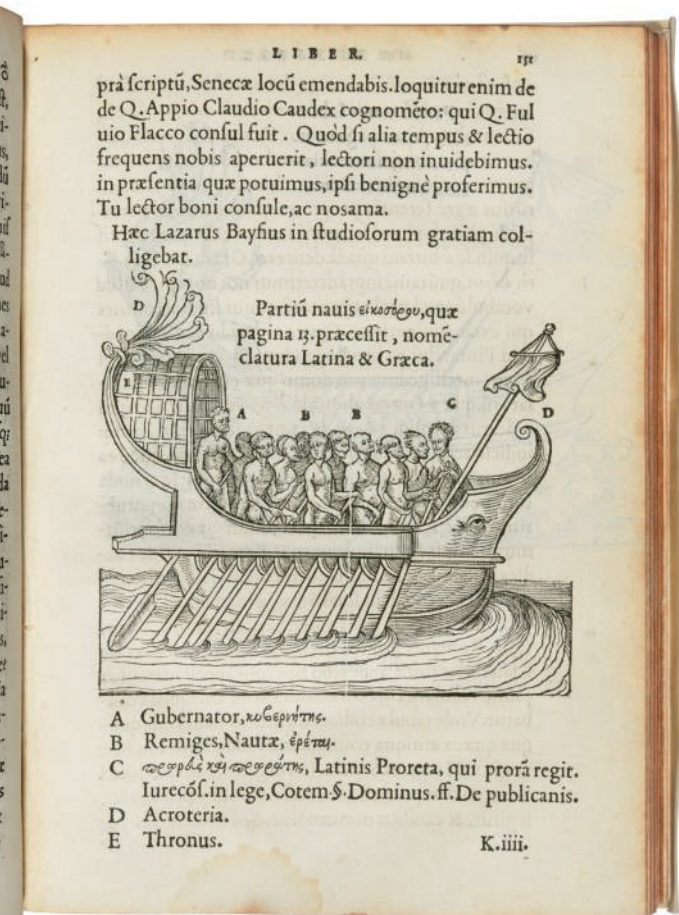 LIBER. 151
prà scriptũ, Senecæ locũ emendabis. loquitur enim de
de Q. Appio Claudio Caudex cognomẽto: qui Q. Ful
uio Flacco consul fuit. Quòd si alia tempus & lectio
frequens nobis aperuerit, lectori non inuidebimus.
in præsentia quæ potuimus, ipsi benignè proferimus.
Tu lector boni consule, ac nos ama.
Hæc Lazarus Bayfius in studiosorum gratiam col-
ligebat.
Partiũ nauis εἰκοσόρου, quæ
pagina 13. præcessit, nomẽ-
clatura Latina & Græca.
D
E
A B B C D
A Gubernator, κυβερνήτης.
B Remiges, Nautæ, ἐρέται.
C πρωρεὺς καὶ πρωράτης, Latinis Proreta, qui prorã regit.
Iurecõs. in lege, Cotem §. Dominus. ff. De publicanis.
D Acroteria.
E Thronus.
K.iiii.